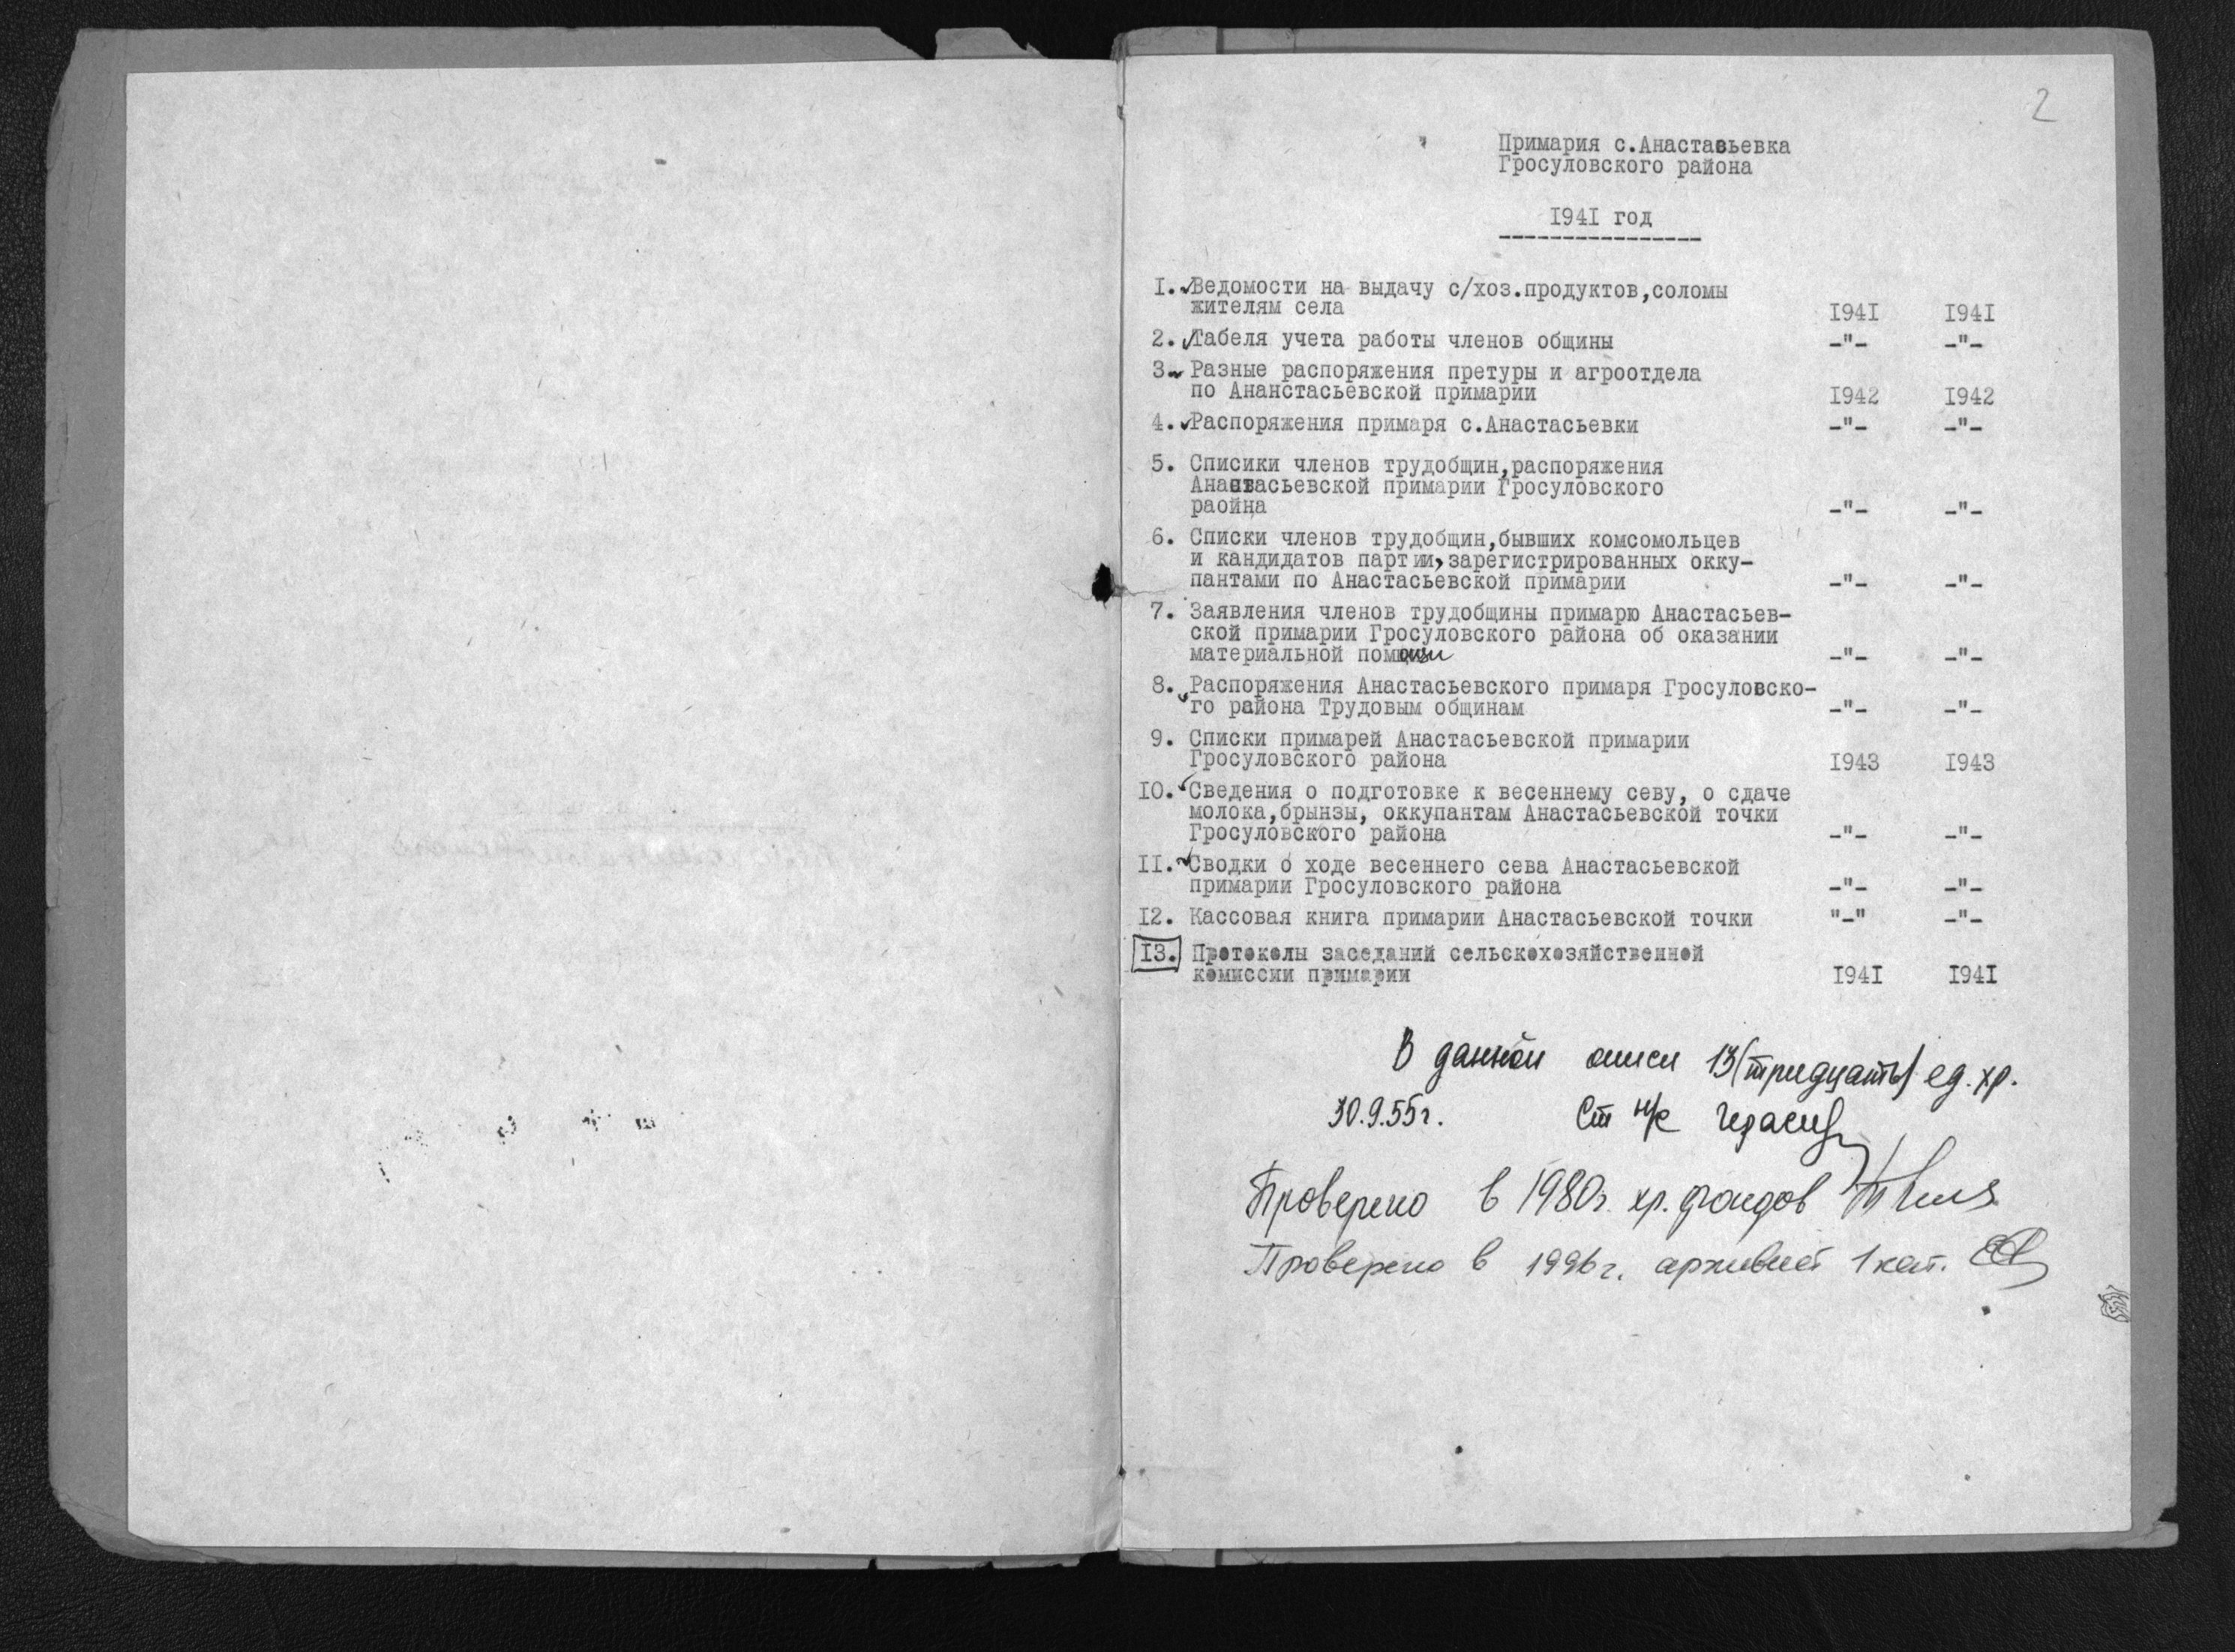 2
Примария с.Анастасьевка
Гросуловского района
I94I год
----------------
I. Ведомости на выдачу с/хоз.продуктов,соломы
жителям села I94I I94I
2. Табеля учета работы членов общины -"- -"-
3. Разные распоряжения претуры и агроотдела
по Ананстасьевской примарии I942 I942
4. Распоряжения примаря с.Анастасьевки -"- -"-
5. Списики членов трудобщин,распоряжения
Анастасьевской примарии Гросуловского
раойна -"- -"-
6. Списки членов трудобщин,бывших комсомольцев
и кандидатов партии,зарегистрированных окку-
пантами по Анастасьевской примарии -"- -"-
7. Заявления членов трудобщины примарю Анастасьев-
ской примарии Гросуловского района об оказании
материальной помощи -"- -"-
8. Распоряжения Анастасьевского примаря Гросуловско-
го района Трудовым общинам -"- -"-
9. Списки примарей Анастасьевской примарии
Гросуловского района I943 I943
I0. Сведения о подготовке к весеннему севу, о сдаче
молока,брынзы, оккупантам Анастасьевской точки
Гросуловского района -"- -"-
II. Сводки о ходе весеннего сева Анастасьевской
примарии Гросуловского района -"- -"-
I2. Кассовая книга примарии Анастасьевской точки "-" -"-
I3. Протоколы заседаний сельскохозяйственной
комиссии примарии I94I I94I
В данной описи 13(тридцать) ед. хр.
30.9.55г. Ст н/с
Проверено в 1980г. хр. фондов
Проверено в 1996г. архивист 1 кат.